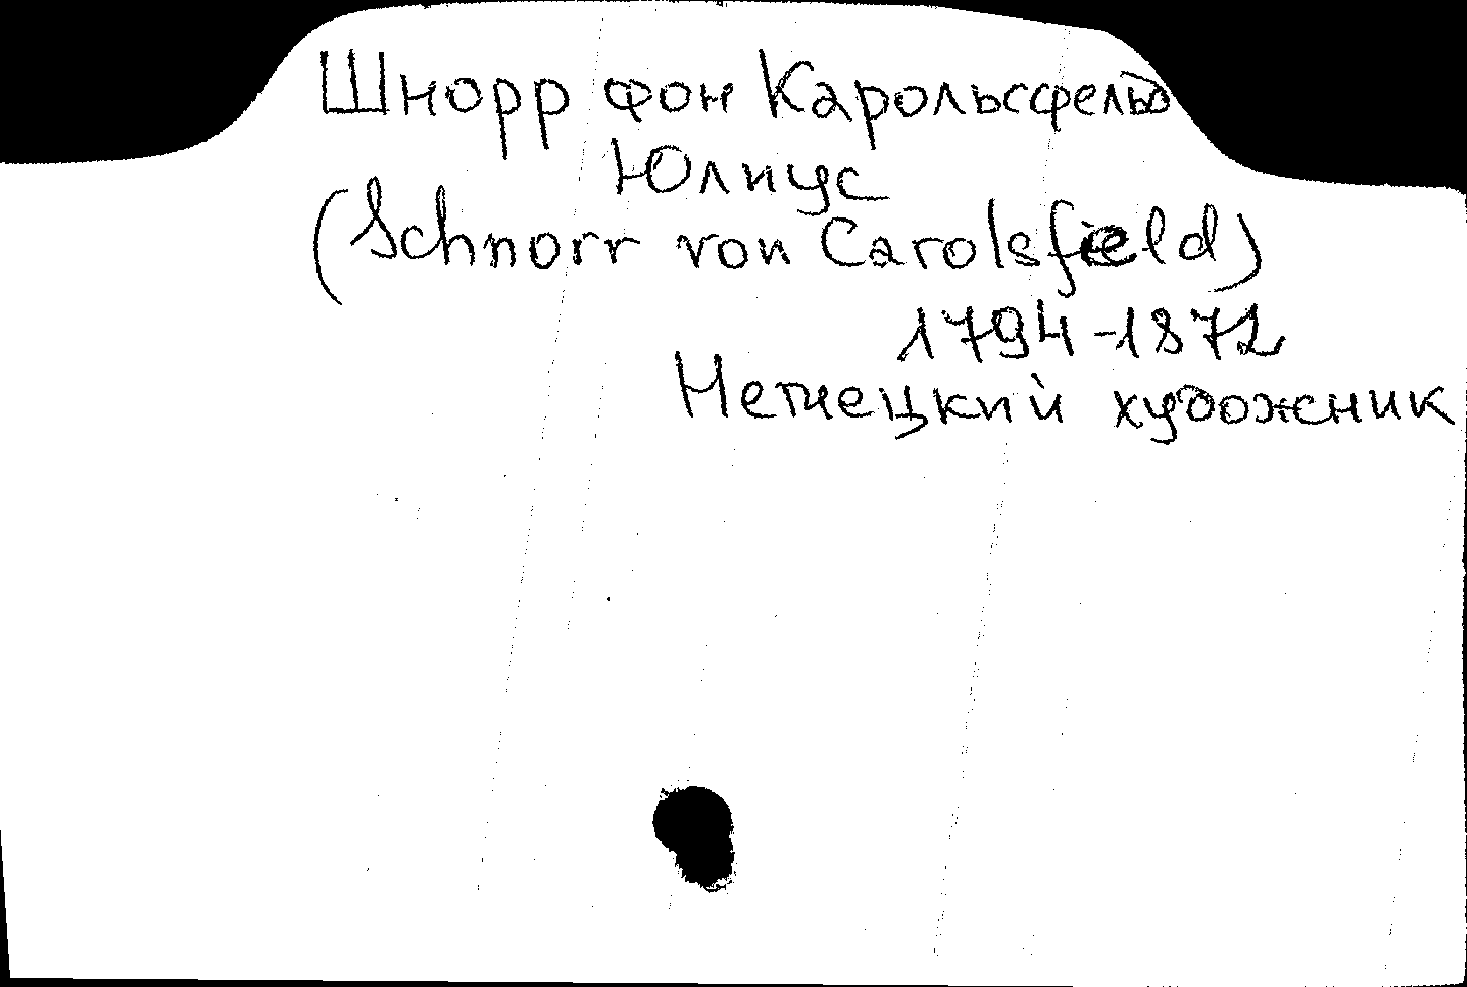 Шнорр фон Карольсфельд
Юлиус
(Schnorr von Carolsfeld)
1794-1872
Немецкий художник